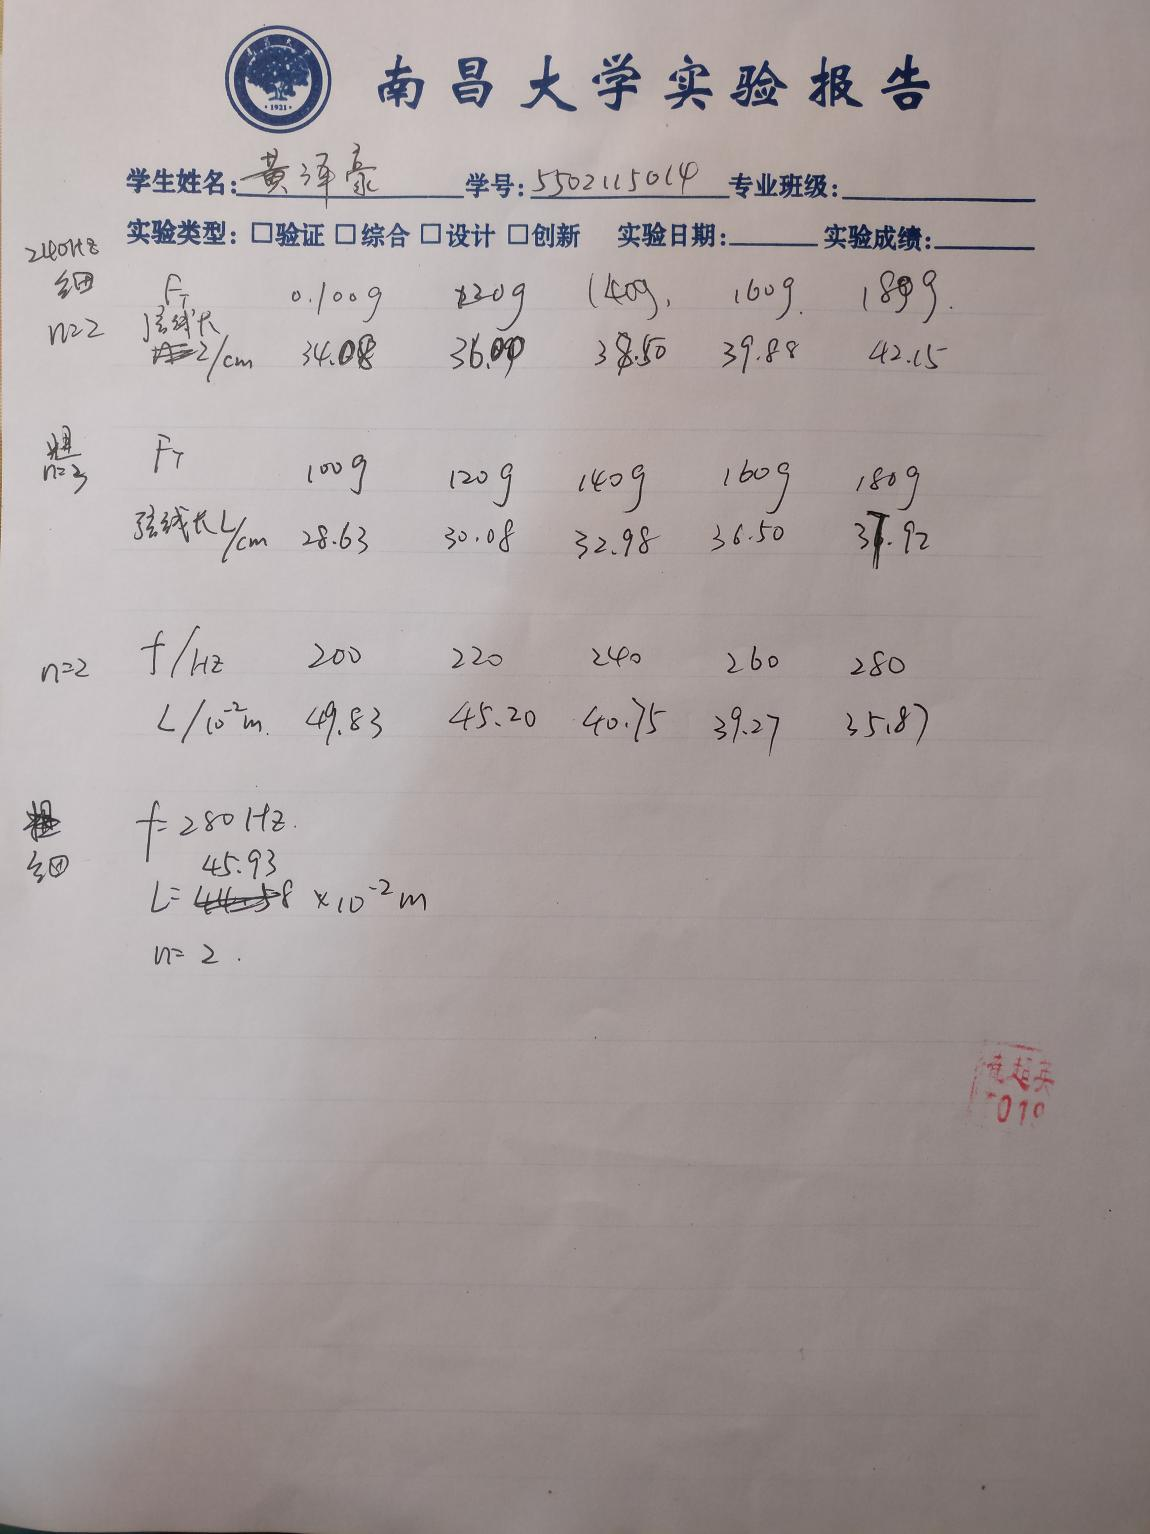 1921
南昌大学实验报告
学生姓名: 黄泽豪 学号: 5502115014 专业班级:
实验类型: □验证 □综合 □设计 □创新 实验日期: 实验成绩:
240Hz
细
n=2
F_T 0.100g 120g 140g, 160g. 180g.
弦线长 L/cm 34.08 36.00 38.50 39.88 42.15
粗
n=3
F_T 100g 120g 140g 160g 180g
弦线长L/cm 28.63 30.08 32.98 36.50 37.92
n=2 f/Hz 200 220 240 260 280
L/10⁻²m. 49.83 45.20 40.75 39.27 35.87
细
f=280Hz.
45.93
L= ×10⁻²m
n=2.
019